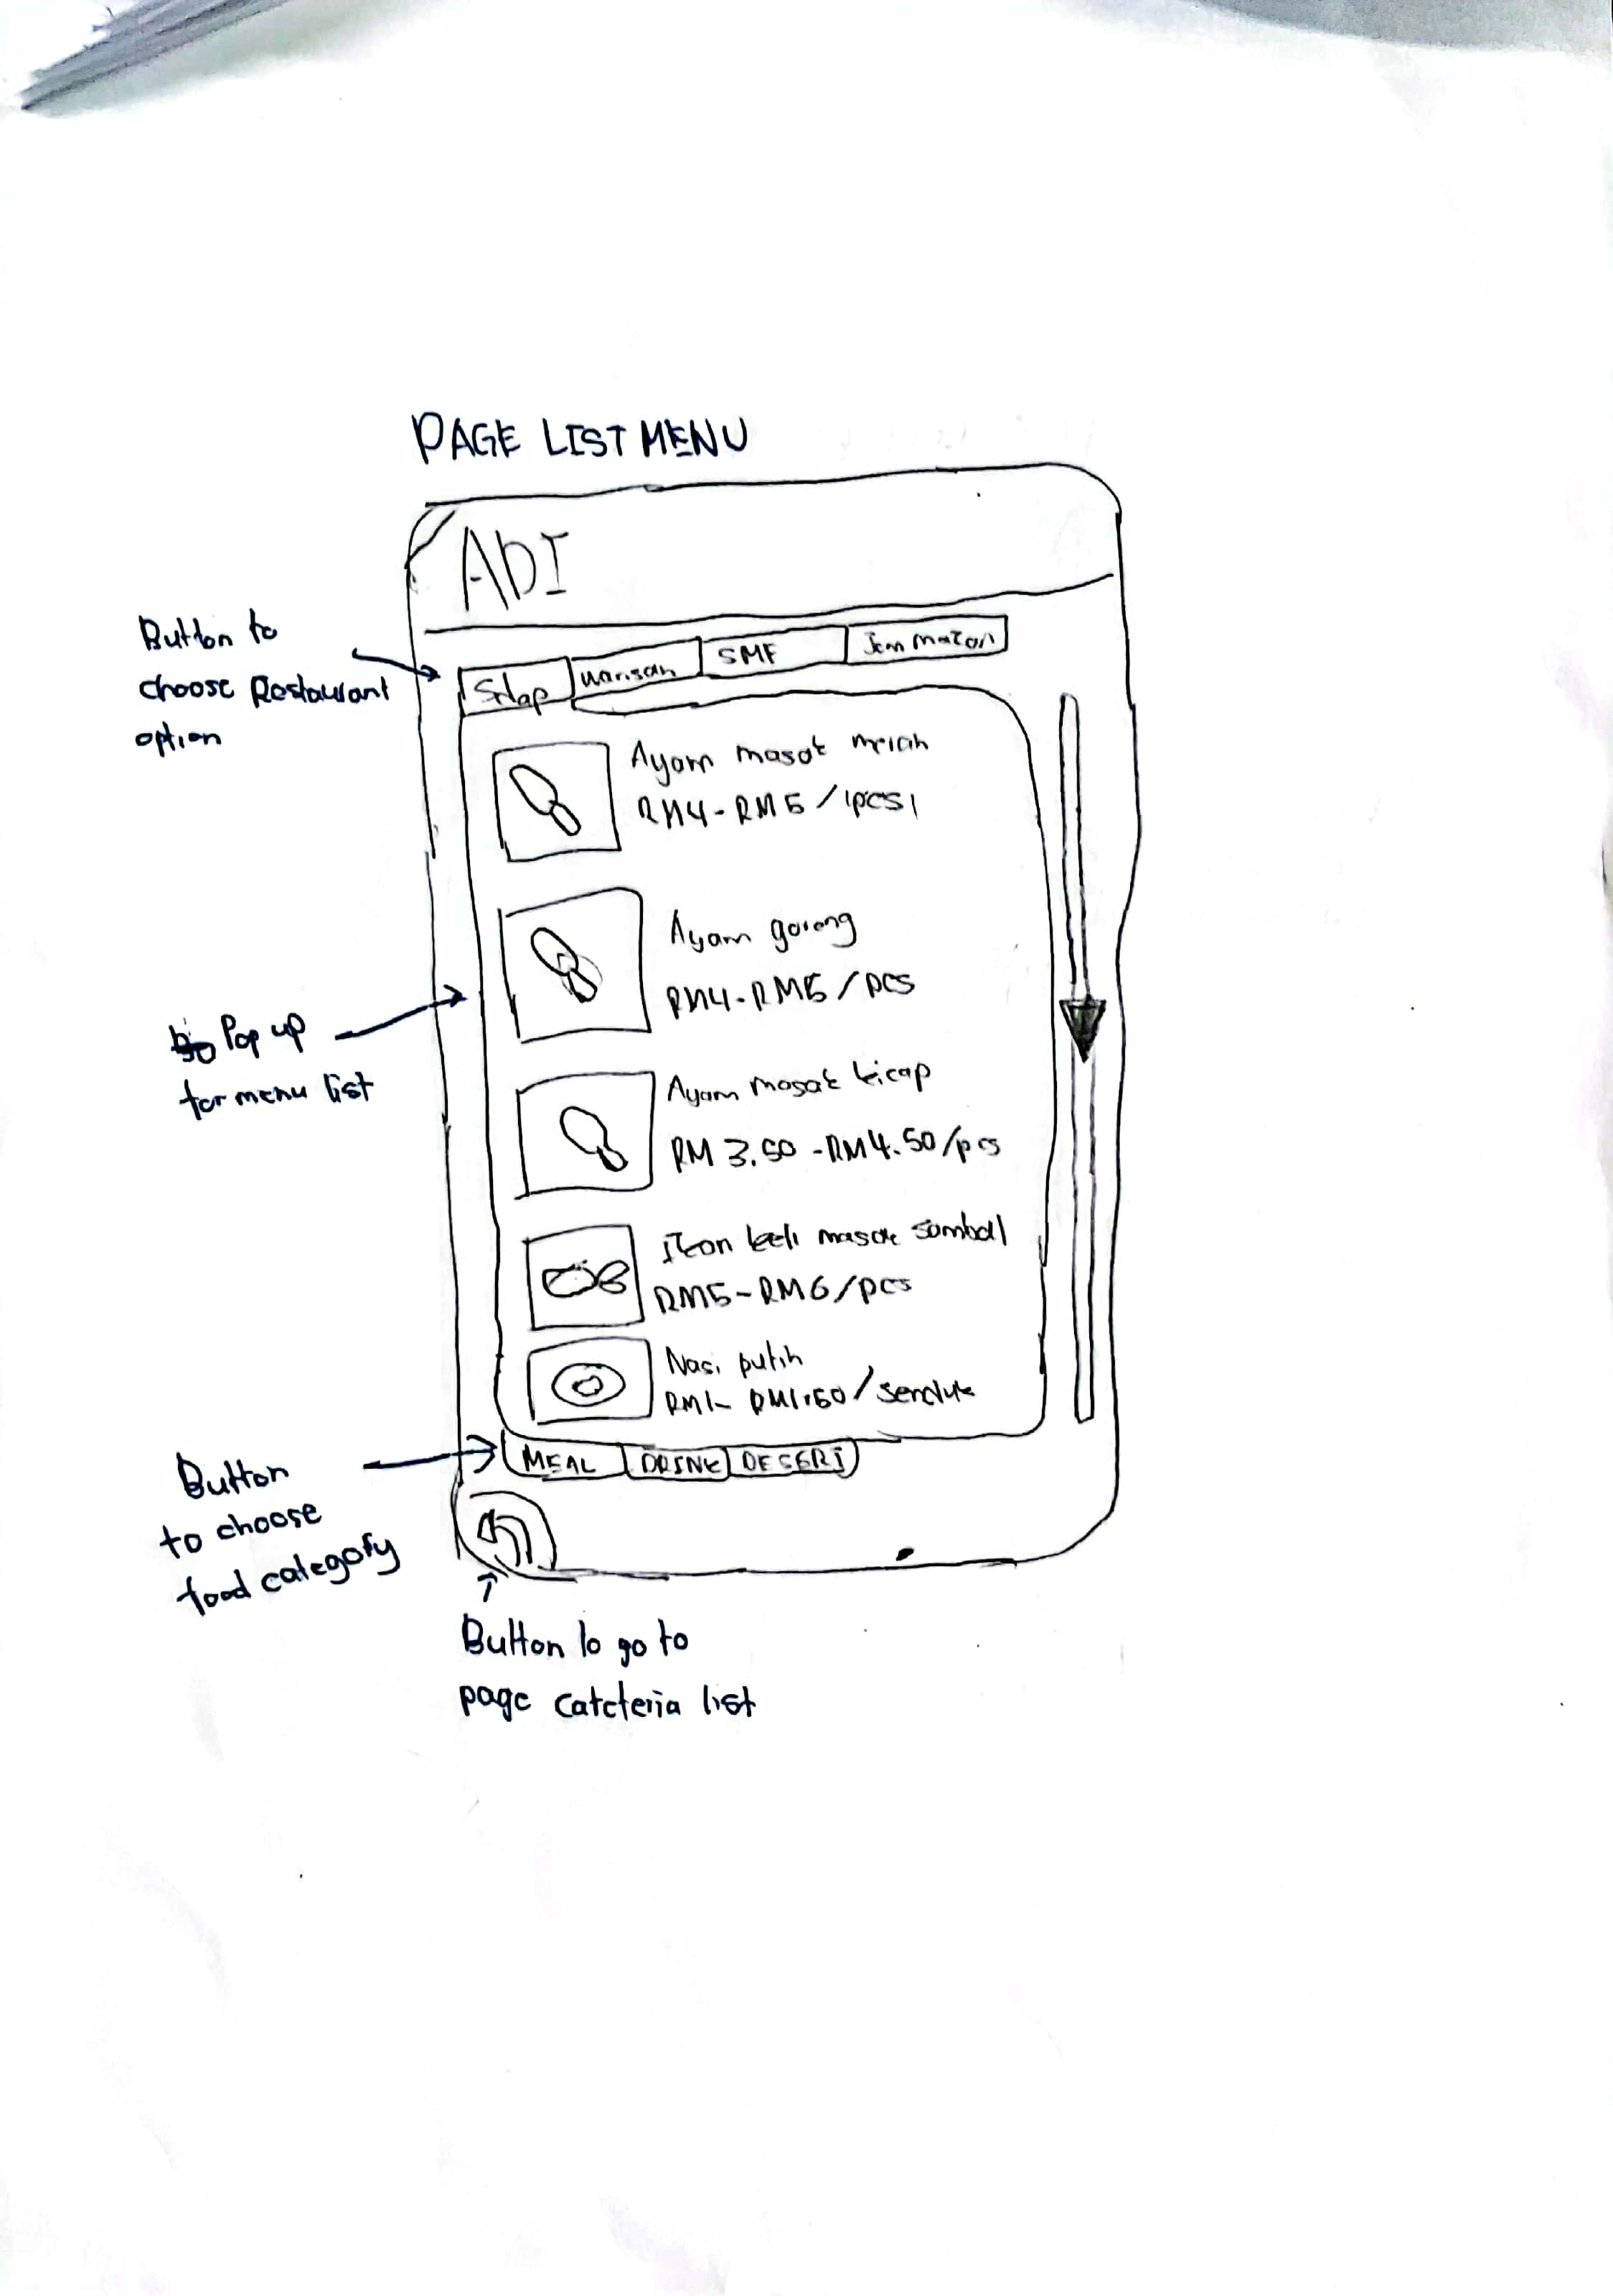 PAGE LIST MENU
ADI
Button to
choose Restaurant
option
Sdap
Warisan
SMF
Jom Matori
Ayam masak merah
RM4-RM5/1pcs1
Ayam goreng
RM4-RM5/pcs
Pop up
for menu list
Ayam masak kicap
RM 3.50-RM4.50/pcs
Ikan keli masak sambal
RM5-RM6/pcs
Nasi putih
RM1- RM1.50/senduk
MEAL
DRINK
DESERT
Button
to choose
food category
Button to go to
page cafeteria list